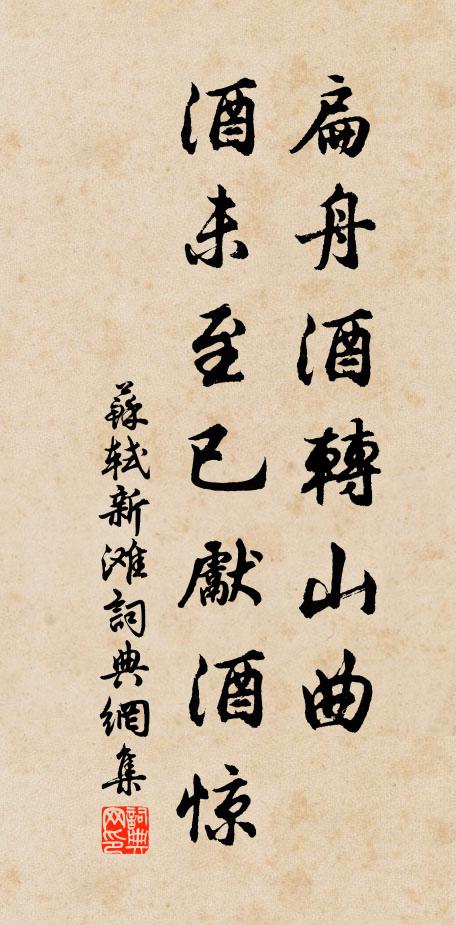 扁舟酒轉山曲
酒未至已獻酒惊
蘇軾新滩詞典網集
詞典網印